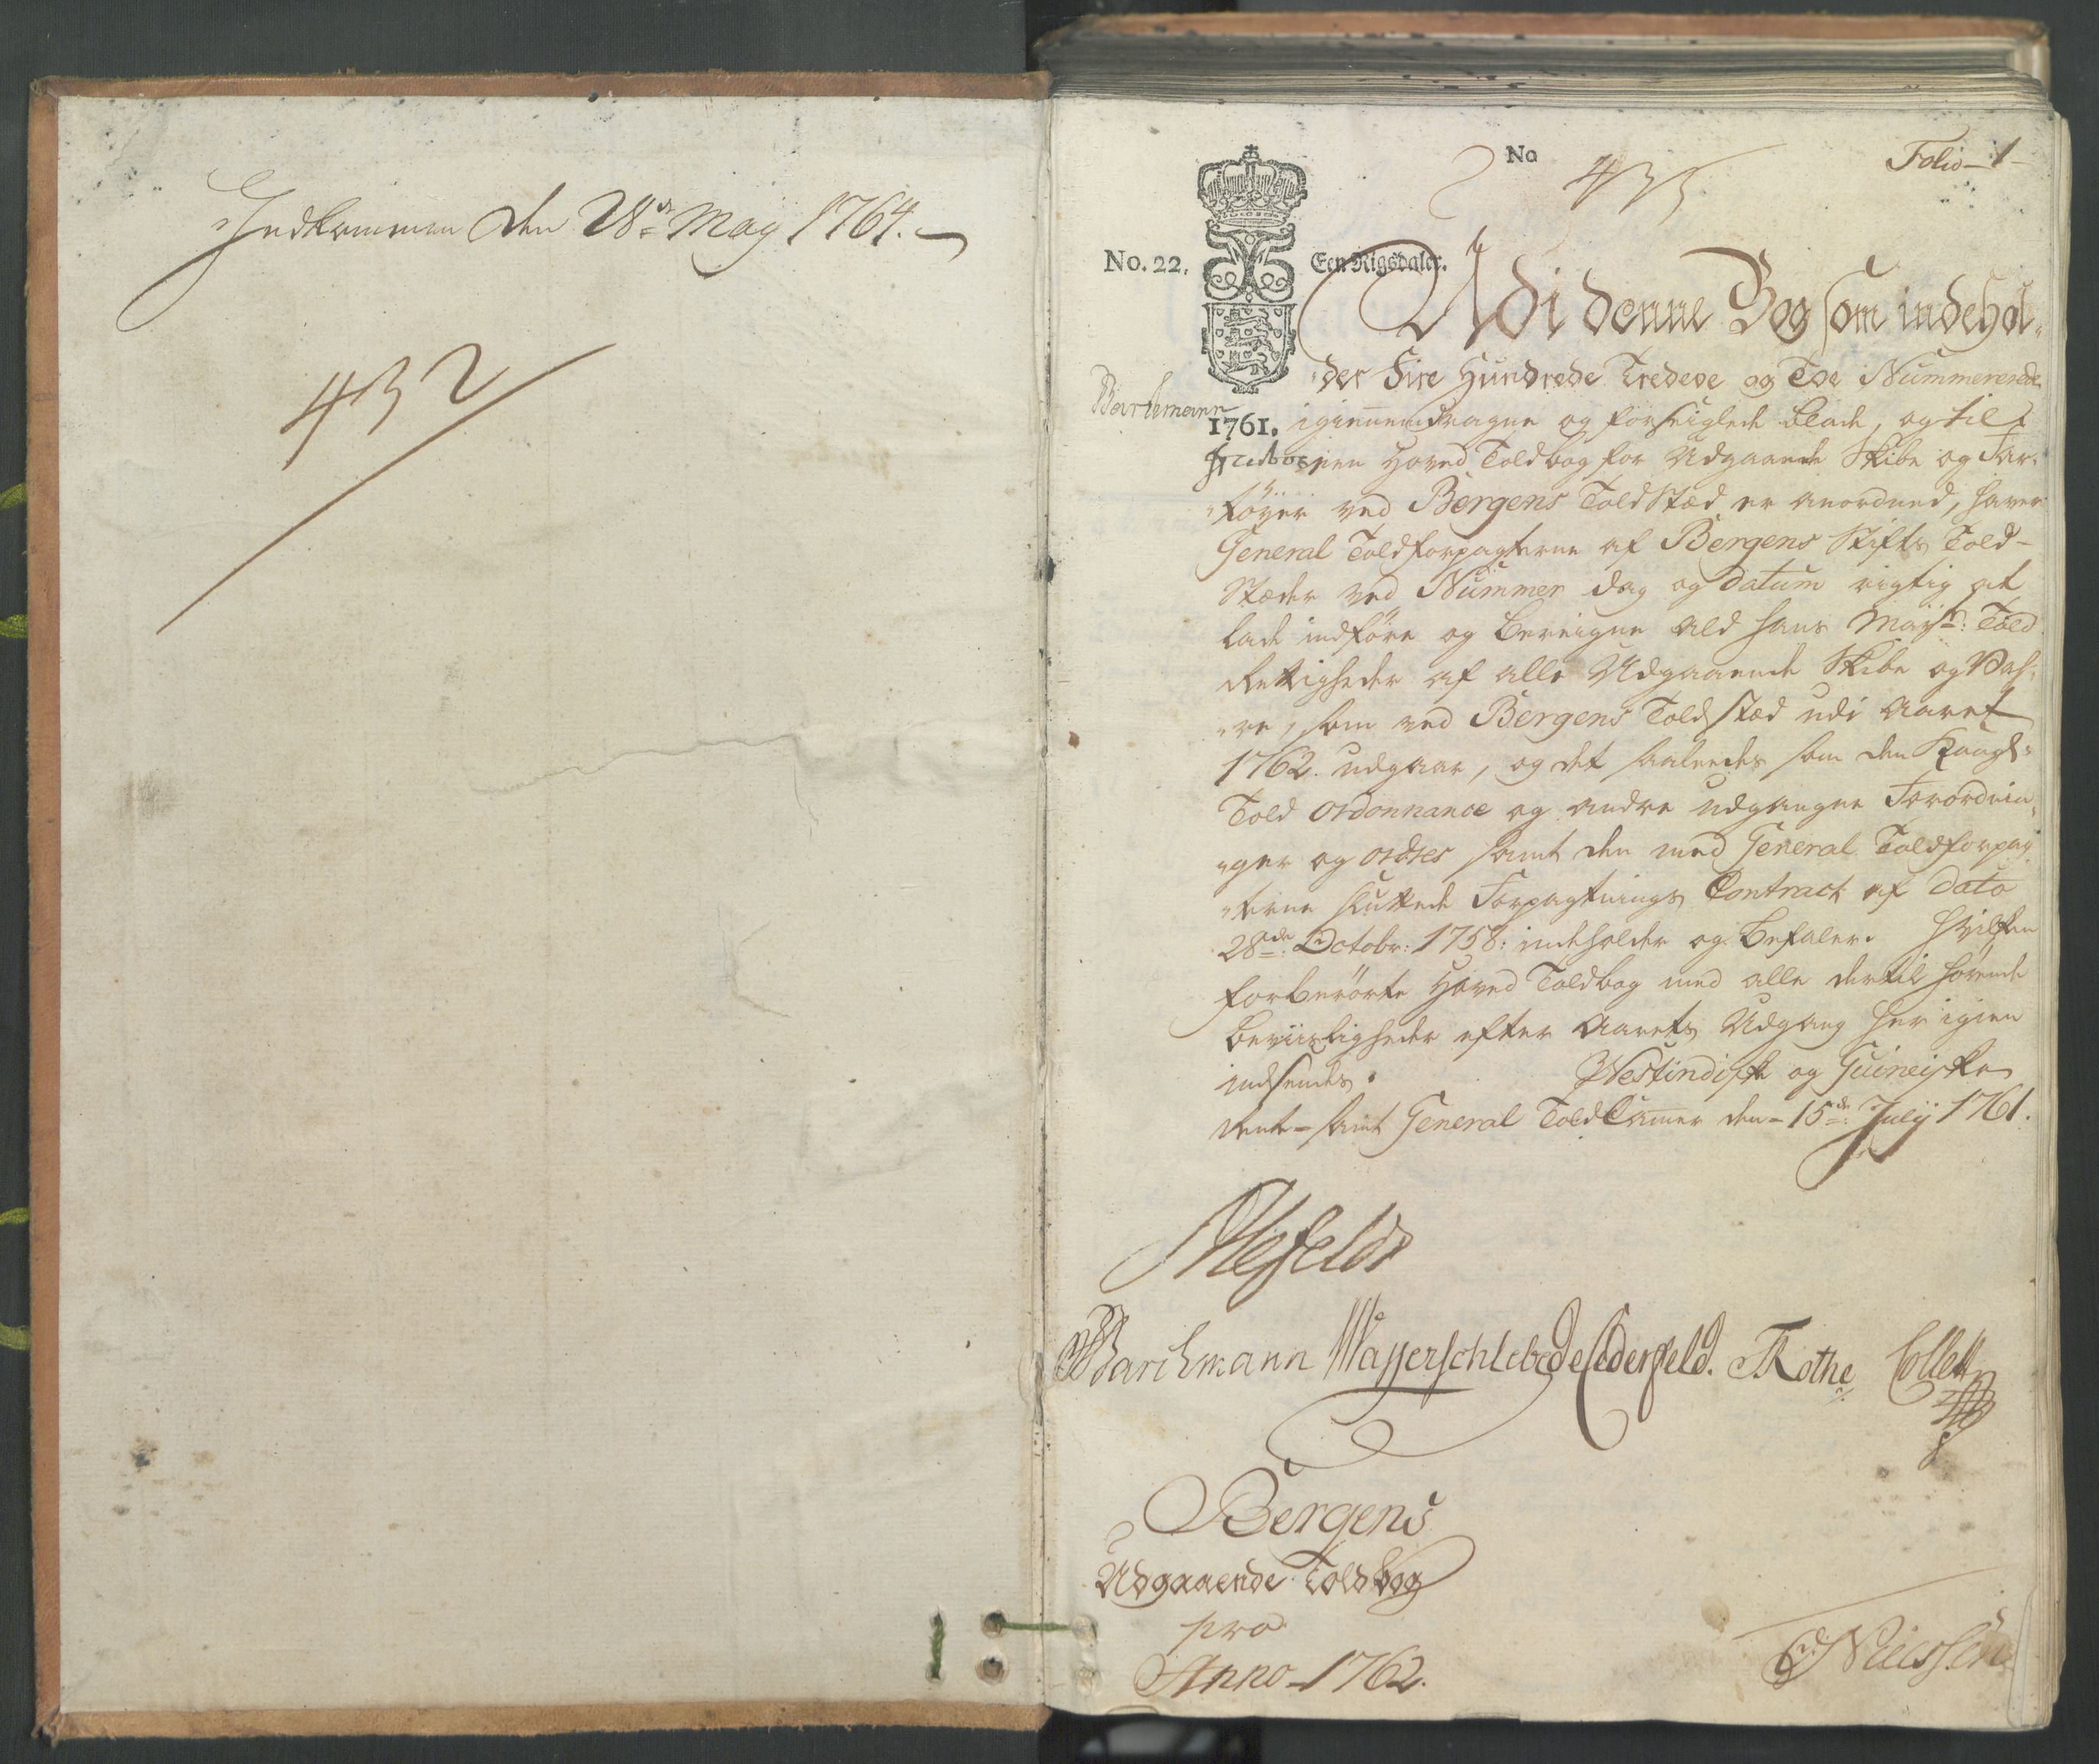 Indkommen den 28de May 1764.
432
No 435
Folio 1
No. 22.
Een Rigsdaler.
Udi denne Bog som indehol-
der Fire Hundrede Tredeve og Toe Nummererede
Barchmann
1761. igiennemdragne og forseiglede blade, og til
een Hoved Toldbog for Udgaaende Skibe og Far-
tøyer ved Bergens Toldstæd er anordned, haver
General Toldforpagterne af Bergens Stifts Told-
stæder ved Nummer dag og datum rigtig at
lade indføre og bereigne ald hans Mayts: Told
Rettigheder af alle Udgaaende Skibe og Vah-
re, som ved Bergens Toldstæd udi Aaret
1762. udgaar, og det saaledes som den Kongl:
Told Ordonnance og andre udgangne Forordnin-
ger og Ordres samt den med General Toldforpag
terne sluttede Forpagtnings Contract af Dato
28de Octobr: 1758: indeholder og befaler. Hvilken
forberørte Hoved Toldbog med alle dertil hørende
beviisligheder efter Aarets Udgang her igien
indsendes. Westindiske og Guineiske
Rente- samt General ToldCamer den 15de Julij 1761.
Ahlefeldt
Barchmann Wasserschlebe de Cederfeld. T Rothe Collett
Bergens
Udgaaende Toldbog
pro
Anno 1762.